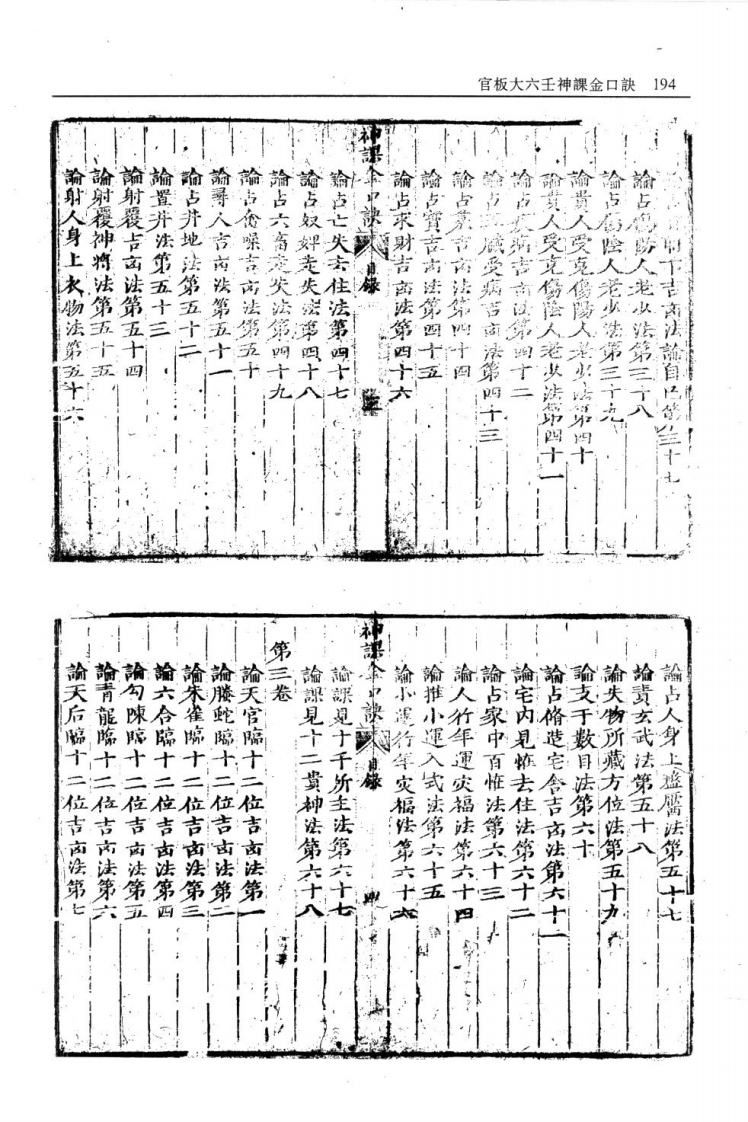 官板大六壬神課金口訣 194
下吉凶法論自己第三十七
論占傷陽人老少法第三十八
論占傷陰人老少法第三十九
論貴人受克傷陽人老少法第四十
論貴人受克傷陰人老少法第四十一
論占疾病吉凶法第四十二
論占五臟受病吉凶法第四十三
論占墓吉凶法第四十四
論占寶吉凶法第四十五
論占求財吉凶法第四十六
神課金口訣 目錄 三
論占亡失去住法第四十七
論占奴婢走失法第四十八
論占六畜走失法第四十九
論占禽噪吉凶法第五十
論尋人吉凶法第五十一
論占井地法第五十二
論置井法第五十三
論射覆吉凶法第五十四
論射覆神將法第五十五
論射人身上衣物法第五十六
論占人身上盬靨法第五十七
論責玄武法第五十八
論失物所藏方位法第五十九
論支干數目法第六十
論占脩造宅舍吉凶法第六十一
論宅內見恠去住法第六十二
論占家中百恠法第六十三
論人行年運災福法第六十四
論推小運入式法第六十五
論小運行年災福法第六十六
神課金口訣 目錄 四
論課見十干所主法第六十七
論課見十二貴神法第六十八
第三卷
論天官臨十二位吉凶法第一
論騰蛇臨十二位吉凶法第二
論朱雀臨十二位吉凶法第三
論六合臨十二位吉凶法第四
論勾陳臨十二位吉凶法第五
論青龍臨十二位吉凶法第六
論天后臨十二位吉凶法第七